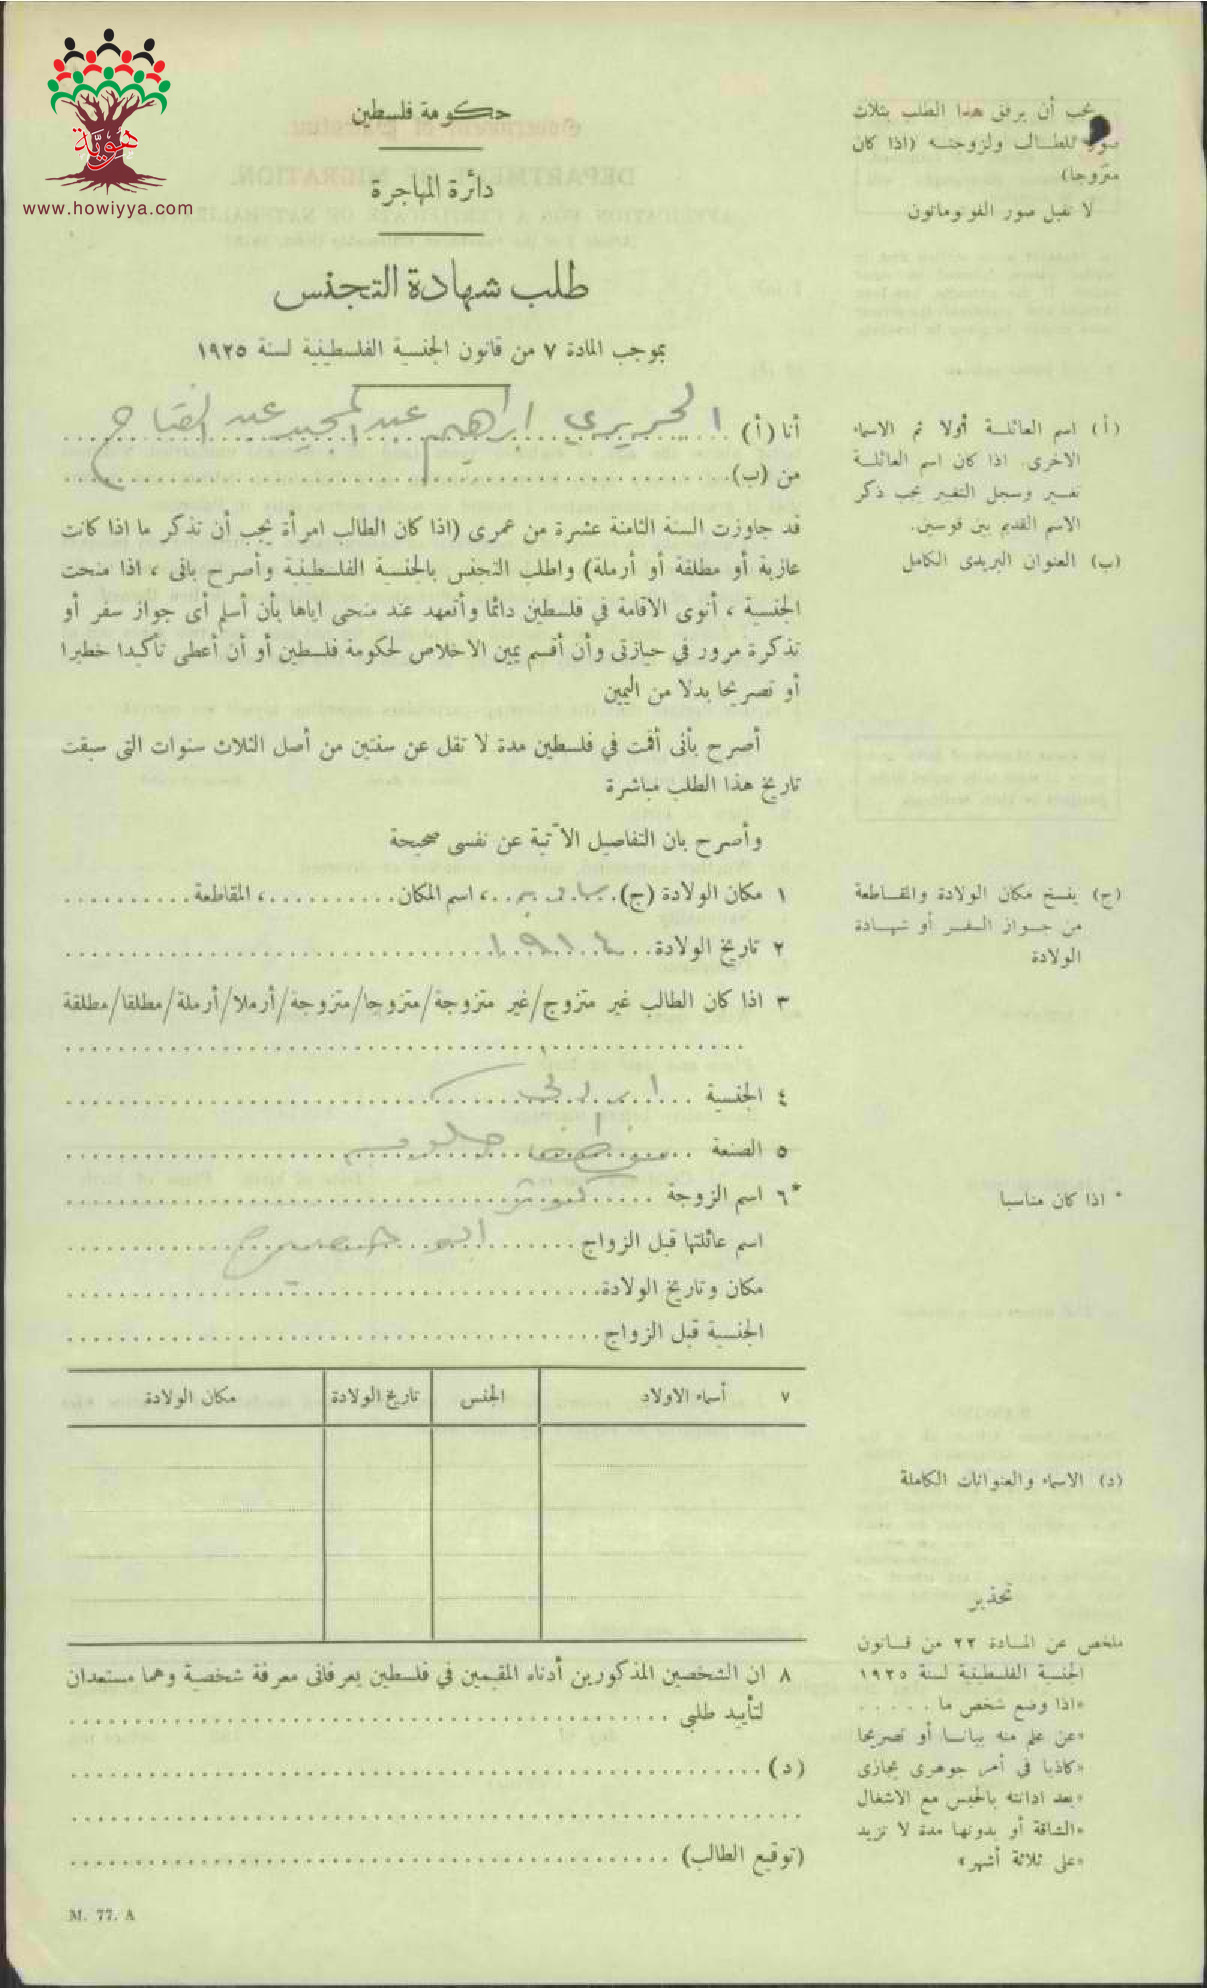 هوية
www.howiyya.com
حكومة فلسطين
دائرة المهاجرة
طلب شهادة التجنس
بموجب المادة ٧ من قانون الجنسية الفلسطينية لسنة ١٩٢٥
يجب أن يرفق هذا الطلب بثلاث
صور للطالب ولزوجته (اذا كان
متزوجا)
لا تقبل صور الفوتوماتون
أنا (أ) الحريري ابراهيم عبد المجيد عبد الفتاح
من (ب)
(أ) اسم العائلة أولا ثم الاسماء
الاخرى. اذا كان اسم العائلة
تغير وسجل التغير يجب ذكر
الاسم القديم بين قوسين.
(ب) العنوان البريدى الكامل
قد جاوزت السنة الثامنة عشرة من عمرى (اذا كان الطالب امرأة يجب أن تذكر ما اذا كانت
عازبة أو مطلقة أو أرملة) واطلب التجنس بالجنسية الفلسطينية وأصرح بانى ، اذا منحت
الجنسية ، أنوى الاقامة في فلسطين دائما وأتعهد عند منحى اياها بأن أسلم أى جواز سفر أو
تذكرة مرور في حيازتى وأن أقسم يمين الاخلاص لحكومة فلسطين أو أن أعطى تأكيدا خطيرا
أو تصريحا بدلا من اليمين
أصرح بأنى أقمت في فلسطين مدة لا تقل عن سنتين من أصل الثلاث سنوات التى سبقت
تاريخ هذا الطلب مباشرة
وأصرح بان التفاصيل الآتية عن نفسى صحيحة
١ مكان الولادة (ج) ، اسم المكان ، المقاطعة
(ج) ينسخ مكان الولادة والمقاطعة
من جواز السفر أو شهادة
الولادة
٢ تاريخ الولادة ١٩١٤
٣ اذا كان الطالب غير متزوج/غير متزوجة/متزوجا/متزوجة/أرملا/أرملة/مطلقا/مطلقة
٤ الجنسية ايراني
٥ الصنعة موظف حكومة
*٦ اسم الزوجة
* اذا كان مناسبا
اسم عائلتها قبل الزواج ابو
مكان وتاريخ الولادة
الجنسية قبل الزواج
٧ أسماء الاولاد الجنس تاريخ الولادة مكان الولادة
(د) الاسماء والعنوانات الكاملة
تحذير
ملخص عن المادة ٢٢ من قانون
الجنسية الفلسطينية لسنة ١٩٢٥
«اذا وضع شخص ما . . . . .
«عن علم منه بيانا أو تصريحا
«كاذبا في أمر جوهرى يجازى
«بعد ادانته بالحبس مع الاشغال
«الشاقة أو بدونها مدة لا تزيد
«على ثلاثة أشهر»
٨ ان الشخصين المذكورين أدناه المقيمين في فلسطين يعرفانى معرفة شخصية وهما مستعدان
لتأييد طلبى
(د)
(توقيع الطالب)
M. 77. A